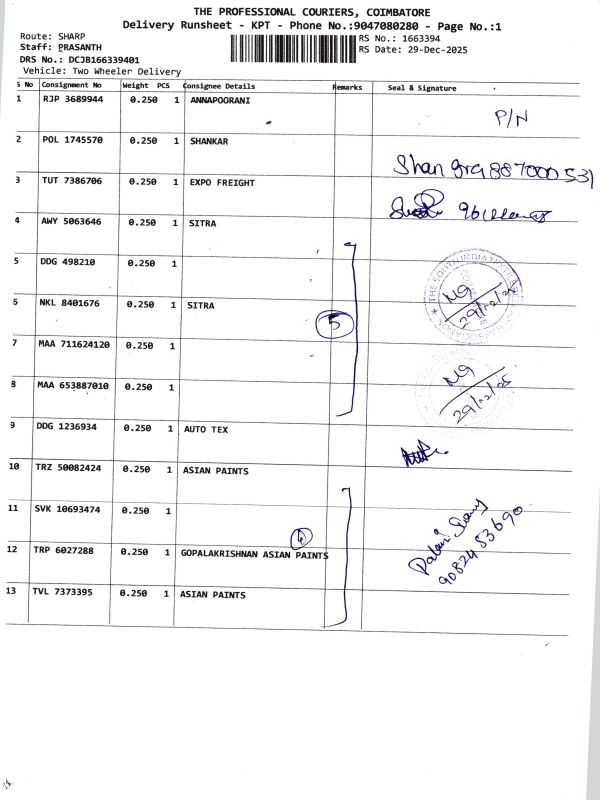 THE PROFESSIONAL COURIERS, COIMBATORE
Delivery Runsheet - KPT - Phone No.:9047080280 - Page No.:1
Route: SHARP
Staff: PRASANTH
DRS No.: DCJB166339401
Vehicle: Two Wheeler Delivery
RS No.: 1663394
RS Date: 29-Dec-2025
S No Consignment No Weight PCS Consignee Details Remarks Seal & Signature
1 RJP 3689944 0.250 1 ANNAPOORANI P/N
2 POL 1745570 0.250 1 SHANKAR
3 TUT 7386706 0.250 1 EXPO FREIGHT
4 AWY 5063646 0.250 1 SITRA
5 DDG 498210 0.250 1
6 NKL 8401676 0.250 1 SITRA
5
29/12/25
7 MAA 711624120 0.250 1
8 MAA 653887010 0.250 1
29/12/25
9 DDG 1236934 0.250 1 AUTO TEX
10 TRZ 50082424 0.250 1 ASIAN PAINTS
11 SVK 10693474 0.250 1
4
12 TRP 6027288 0.250 1 GOPALAKRISHNAN ASIAN PAINTS
9082453690
13 TVL 7373395 0.250 1 ASIAN PAINTS